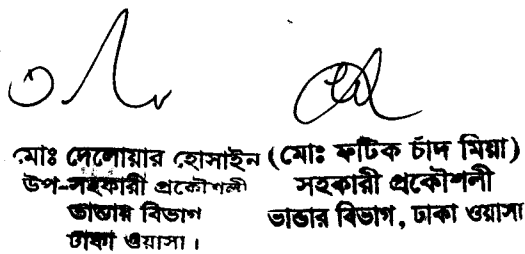 মোঃ দেলোয়ার হোসাইন
উপ-সহকারী প্রকৌশলী
ভান্ডার বিভাগ
ঢাকা ওয়াসা।
(মোঃ ফটিক চাঁদ মিয়া)
সহকারী প্রকৌশলী
ভান্ডার বিভাগ, ঢাকা ওয়াসা